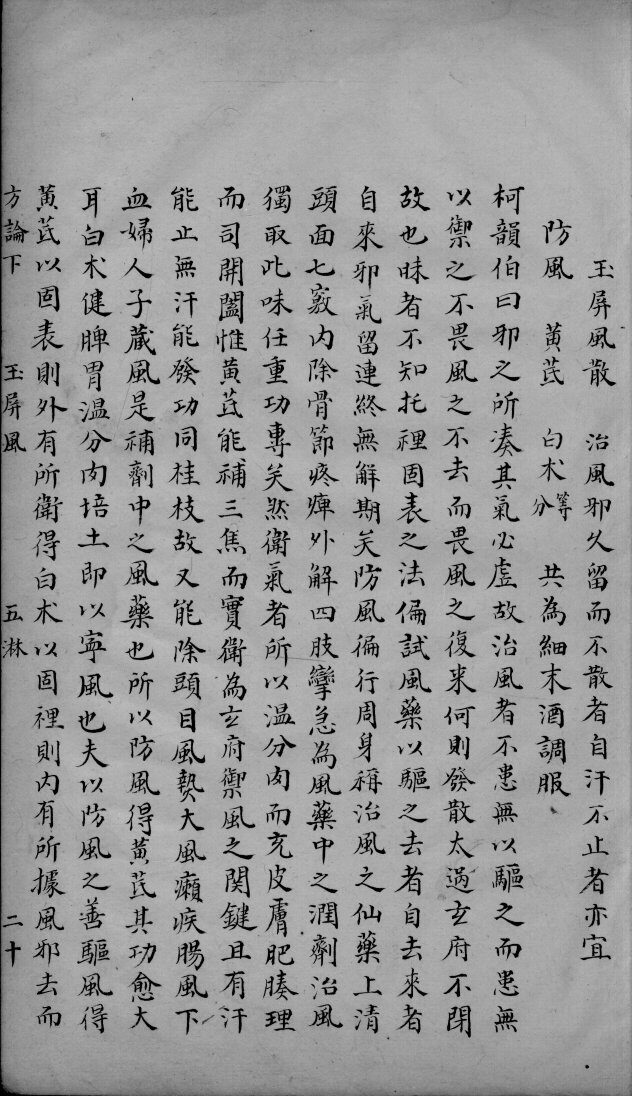 玉屏風散 治風邪久留而不散者自汗不止者亦宜
防風 黃芪 白朮等分 共為細末酒調服
柯韻伯曰邪之所凑其氣必虛故治風者不患無以驅之而患無
以禦之不畏風之不去而畏風之復来何則發散太過玄府不閉
故也昧者不知托裡固表之法偏試風藥以驅之去者自去來者
自來邪氣留連終無解期矣防風徧行周身稱治風之仙藥上清
頭面七竅内除骨節疼痺外解四肢攣急為風藥中之潤劑治風
獨取此味任重功專矣然衛氣者所以温分肉而充皮膚肥腠理
而司開闔惟黃芪能補三焦而實衛為玄府禦風之関鍵且有汗
能止無汗能發功同桂枝故又能除頭目風熱大風癩疾腸風下
血婦人子蔵風是補劑中之風藥也所以防風得黃芪其功愈大
耳白朮健脾胃温分肉培土即以寧風也夫以防風之善驅風得
黃芪以固表則外有所衛得白朮以固裡則内有所據風邪去而
方論下 玉屏風 五淋 二十